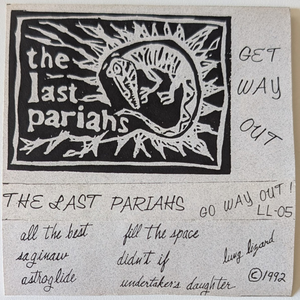 the
last
pariahs
GET
WAY
OUT
THE LAST PARIAHS
GO WAY OUT!
LL-05
all the best
saginaw
astroglide
fill the space
didn't if
undertaker's daughter
lung lizard
©1992